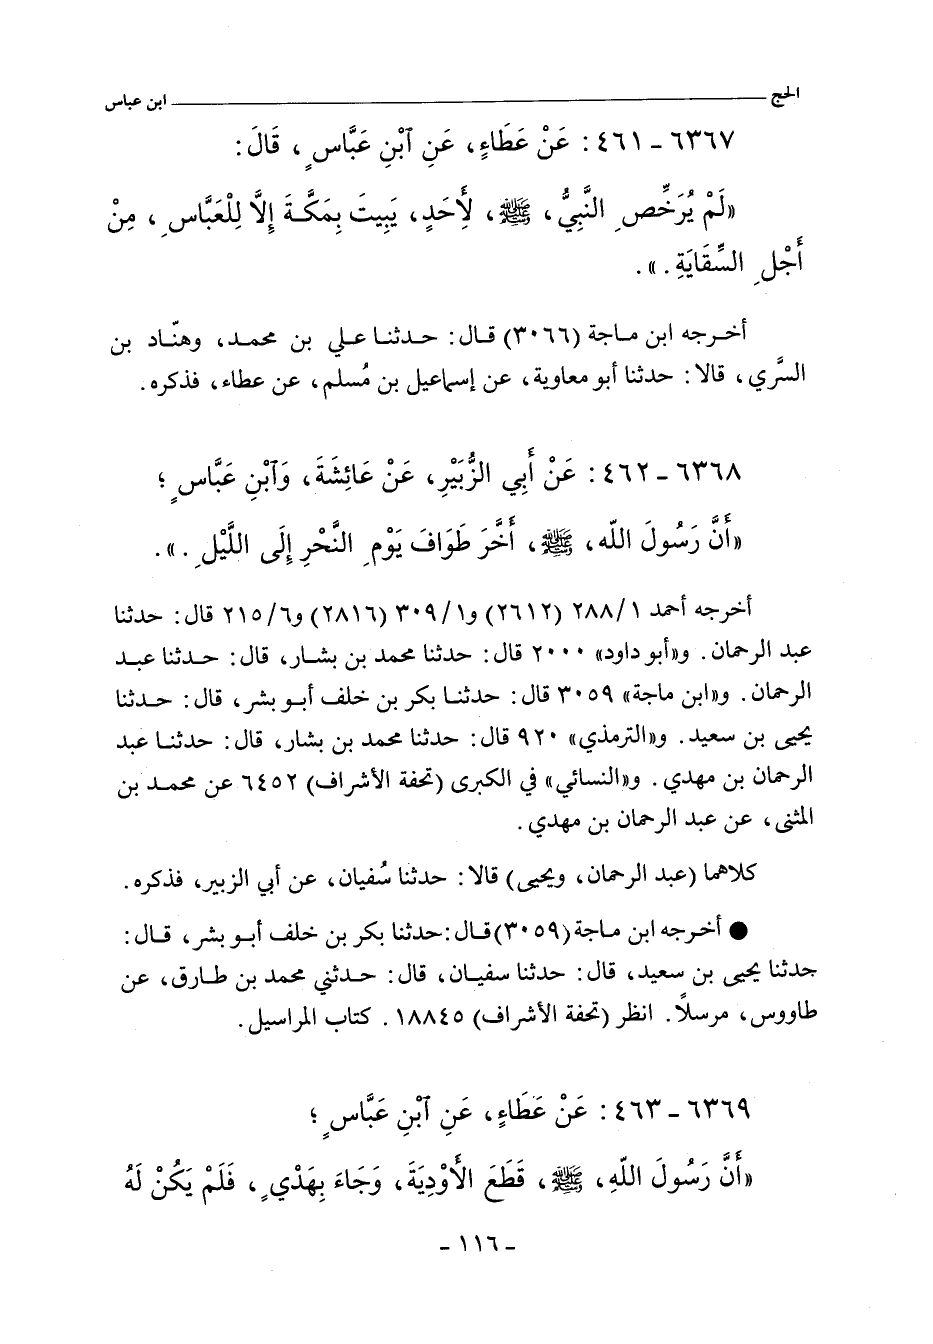 الحج ـــــــــــــــــــــــــــــــــــــــــــــــ ابن عباس
٦٣٦٧ - ٤٦١ : عَنْ عَطَاءٍ، عَنِ ٱبْنِ عَبَّاسٍ ، قَالَ :
«لَمْ يُرَخِّصِ النَّبِيُّ، ﷺ، لِأَحَدٍ، يَبِيتَ بِمَكَّةَ إِلَّا لِلْعَبَّاسِ ، مِنْ
أَجْلِ السِّقَايَةِ . » .
أخرجه ابن ماجة (٣٠٦٦) قال : حدثنا علي بن محمد، وهنّاد بن
السَّري ، قالا : حدثنا أبو معاوية، عن إسماعيل بن مُسلم، عن عطاء، فذكره.
٦٣٦٨ - ٤٦٢ : عَنْ أَبِي الزُّبَيْرِ، عَنْ عَائِشَةَ، وَٱبْنِ عَبَّاسٍ ؛
«أَنَّ رَسُولَ اللّه، ﷺ، أَخَّرَ طَوَافَ يَوْمِ النَّحْرِ إِلَى اللَّيْلِ . » .
أخرجه أحمد ٢٨٨/١ (٢٦١٢) و٣٠٩/١ (٢٨١٦) و٢١٥/٦ قال : حدثنا
عبد الرحمان. و«أبو داود» ٢٠٠٠ قال : حدثنا محمد بن بشار، قال : حدثنا عبد
الرحمان. و«ابن ماجة» ٣٠٥٩ قال : حدثنا بكر بن خلف أبو بشر، قال : حدثنا
يحيى بن سعيد. و«الترمذي» ٩٢٠ قال : حدثنا محمد بن بشار، قال : حدثنا عبد
الرحمان بن مهدي. و«النسائي» في الكبرى (تحفة الأشراف) ٦٤٥٢ عن محمد بن
المثنى، عن عبد الرحمان بن مهدي.
كلاهما (عبد الرحمان، ويحيى) قالا : حدثنا سُفيان، عن أبي الزبير، فذكره.
● أخرجه ابن ماجة (٣٠٥٩) قال : حدثنا بكر بن خلف أبو بشر، قال :
حدثنا يحيى بن سعيد، قال : حدثنا سفيان، قال : حدثني محمد بن طارق، عن
طاووس، مرسلاً. انظر (تحفة الأشراف) ١٨٨٤٥. كتاب المراسيل.
٦٣٦٩ - ٤٦٣ : عَنْ عَطَاءٍ، عَنِ ٱبْنِ عَبَّاسٍ ؛
«أَنَّ رَسُولَ اللّهِ، ﷺ، قَطَعَ الْأَوْدِيَةَ، وَجَاءَ بِهَدْيٍ ، فَلَمْ يَكُنْ لَهُ
- ١١٦ -